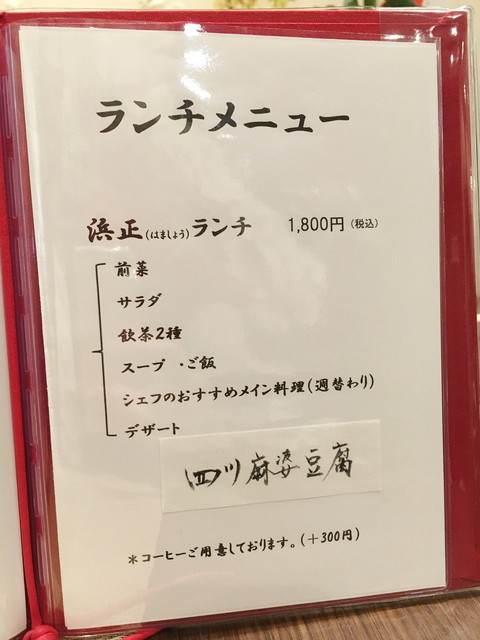 ランチメニュー
浜正(はましょう)ランチ 1,800円(税込)
前菜
サラダ
飲茶2種
スープ ・ご飯
シェフのおすすめメイン料理(週替わり)
デザート
四川麻婆豆腐
*コーヒーご用意しております。(+300円)